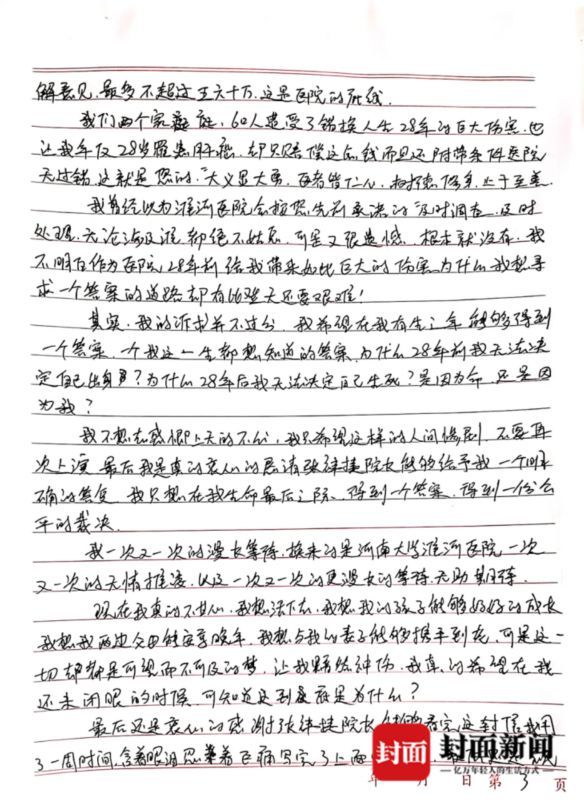 解意见,最多不超过五六十万,这是医院的底线.
我们两个家庭,60人遭受了错换人生28年的巨大伤害,也
让我年仅28岁罹患肝癌,却只赔偿这点钱而且还附带条件医院
无过错,这就是您的,"大义显大勇,医者皆仁心,
我曾经以为淮河医院会按您先前承诺的"及时调查,及时
处理,无论涉及谁,都绝不姑息,可是又很遗憾,根本就没有,我
不明白作为医院,28年前给我带来如此巨大的伤害,为什么我想寻
求一个答案的道路却有比登天还要艰难!
其实,我的诉求并不过分,我希望在我有生之年能够得到
一个答案,一个我这一生都想知道的答案,为什么28年前我无法决
定自己出身?为什么28年后我无法决定自己生死?是因为命,还是因
为我?
我不想去感慨上天的不公,我只希望这样的人间惨剧,不要再
次上演,最后我是真的衷心的恳请张祎捷院长能够给予我一个明
确的答复,我只想在我生命最后之际,得到一个答案,得到一份公
平的裁决.
我一次又一次的漫长等待,换来的是河南大学淮河医院一次
又一次的无情推诿,以及一次又一次的更漫长的等待,无助,期待.
现在我真的不甘心,我想活下去,我想我的孩子能够好好的成长
我想我两边父母能安享晚年,我想与我的妻子能够携手到老,可是这一
切却都是可望而不可及的梦,让我黯然神伤,我真的希望在我
还未闭眼的时候,可知道这到底是为什么?
最后还是衷心的感谢张祎捷院长能够看完这封信,我用
了一周时间,含着眼泪忍着巨痛写完了上面
年 月 日 第 3 页
封面
封面新闻
亿万年轻人的生活方式